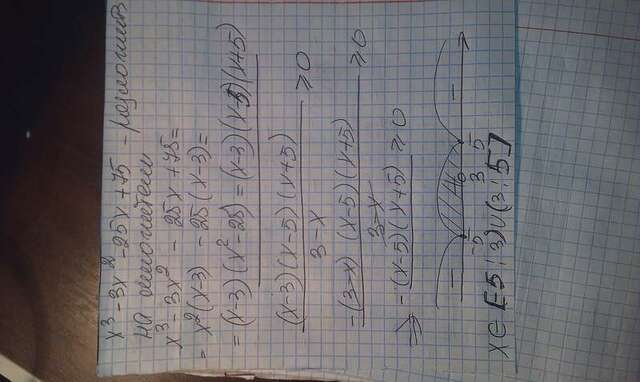 x³-3x²-25x+75 - разложить
на множители
x³-3x² - 25x+75=
= x²(x-3) -25(x-3)=
= (x-3)(x²-25) = (x-3)(x-5)(x+5)
(x-3)(x-5)(x+5) / 3-x ≥ 0
-(3-x)(x-5)(x+5) / 3-x ≥ 0
⇒ -(x-5)(x+5) ≥ 0
- + -
-5 3 5
x∈[-5;3)∪(3;5]